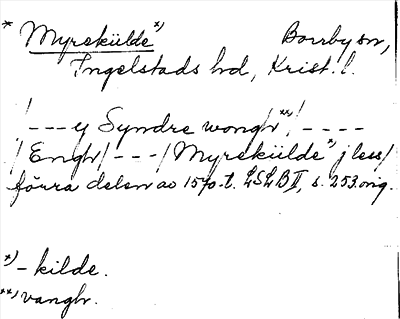 * Myrekülde *) Borrby sn,
Ingelstads hd, Krist. l.
/---y Syndre wongh **)/----
/Engh/---/Myrekülde *) j less/
förra delen av 1570-t. LSLB II, s. 253 orig.
*) - kilde.
**) vangh.